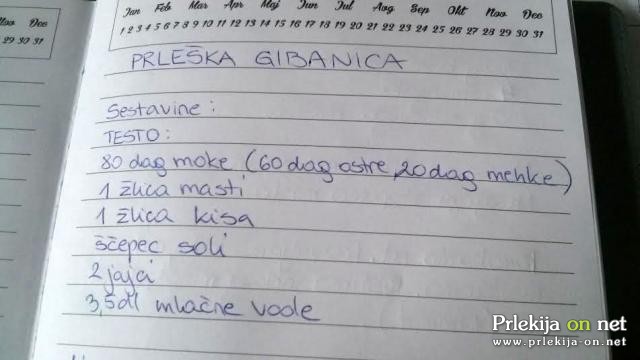 Jan Feb Mar Apr Maj Jun Jul Aug Sep Okt Nov Dec
1 2 3 4 5 6 7 8 9 10 11 12 13 14 15 16 17 18 19 20 21 22 23 24 25 26 27 28 29 30 31
Nov Dec
29 30 31
PRLEŠKA GIBANICA
Sestavine:
TESTO:
80 dag moke (60 dag ostre, 20 dag mehke)
1 žlica masti
1 žlica kisa
ščepec soli
2 jajci
3,5 dl mlačne vode
Prlekija on net
www.prlekija-on.net